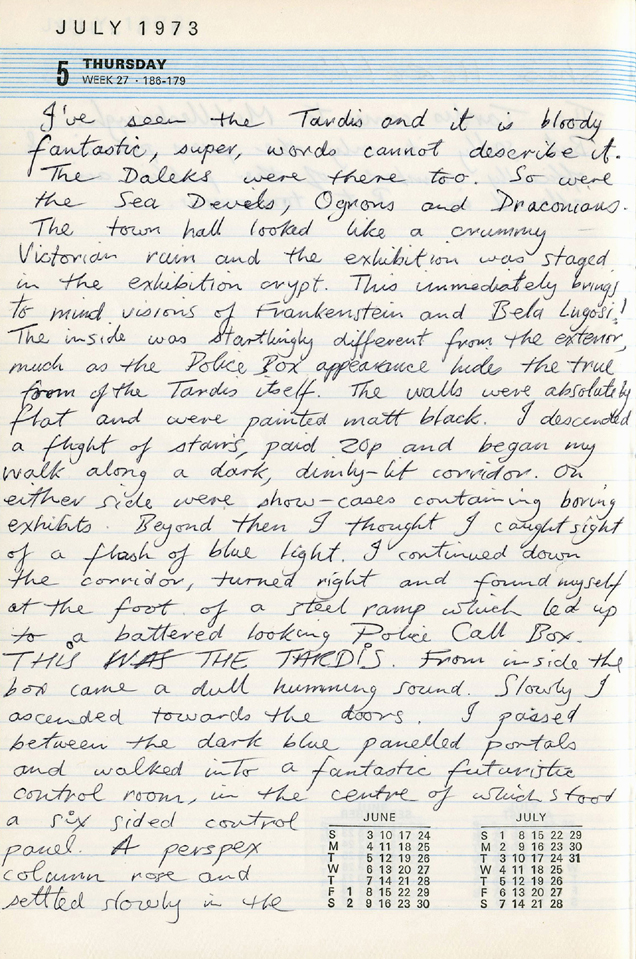 JULY 1973
5 THURSDAY
WEEK 27 · 186-179
I've seen the Tardis and it is bloody
fantastic, super, words cannot describe it.
The Daleks were there too. So were
the Sea Devels, Ogrons and Draconians.
The town hall looked like a crummy
Victorian ruin and the exhibition was staged
in the exhibition crypt. This immediately brings
to mind visions of Frankenstein and Bela Lugosi!
The inside was startlingly different from the exterior,
much as the Police Box appearance hides the true
form of the Tardis itself. The walls were absolutely
flat and were painted matt black. I descended
a flight of stairs, paid 20p and began my
walk along a dark, dimly-lit corridor. On
either side were show-cases containing boring
exhibits. Beyond then I thought I caught sight
of a flash of blue light. I continued down
the corridor, turned right and found myself
at the foot of a steel ramp which led up
to a battered looking Police Call Box.
THIS WAS THE TARDIS. From inside the
box came a dull humming sound. Slowly I
ascended towards the doors. I passed
between the dark blue panelled portals
and walked into a fantastic futuristic
control room, in the centre of which stood
a six sided control
panel. A perspex
column rose and
settled slowly in the
JUNE
S 3 10 17 24
M 4 11 18 25
T 5 12 19 26
W 6 13 20 27
T 7 14 21 28
F 1 8 15 22 29
S 2 9 16 23 30
JULY
S 1 8 15 22 29
M 2 9 16 23 30
T 3 10 17 24 31
W 4 11 18 25
T 5 12 19 26
F 6 13 20 27
S 7 14 21 28